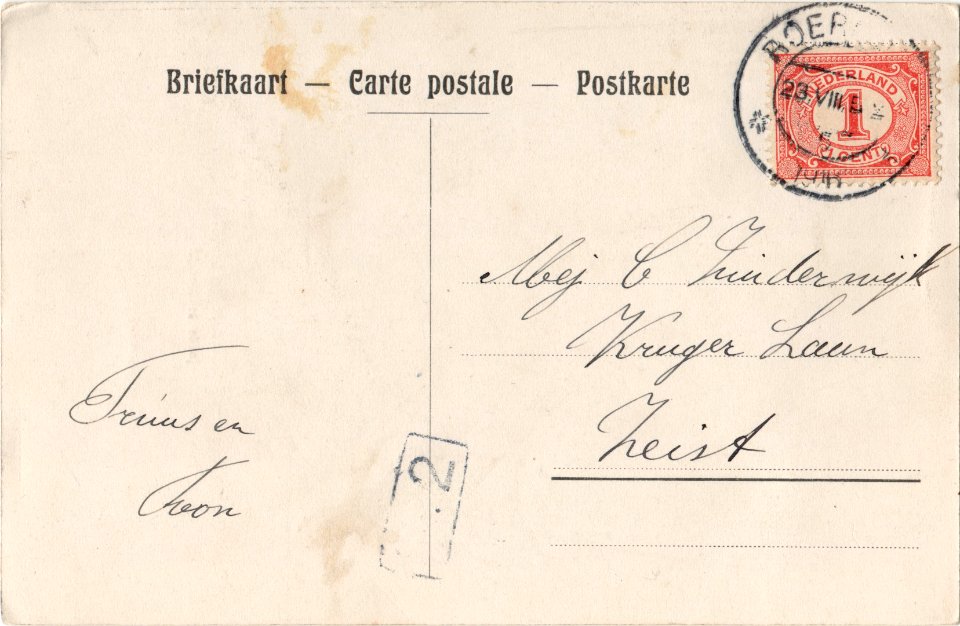 Briefkaart — Carte postale — Postkarte
NEDERLAND
1
CENT
Mej C Zuiderwijk
Kruger Laan
Zeist
Truus en
2